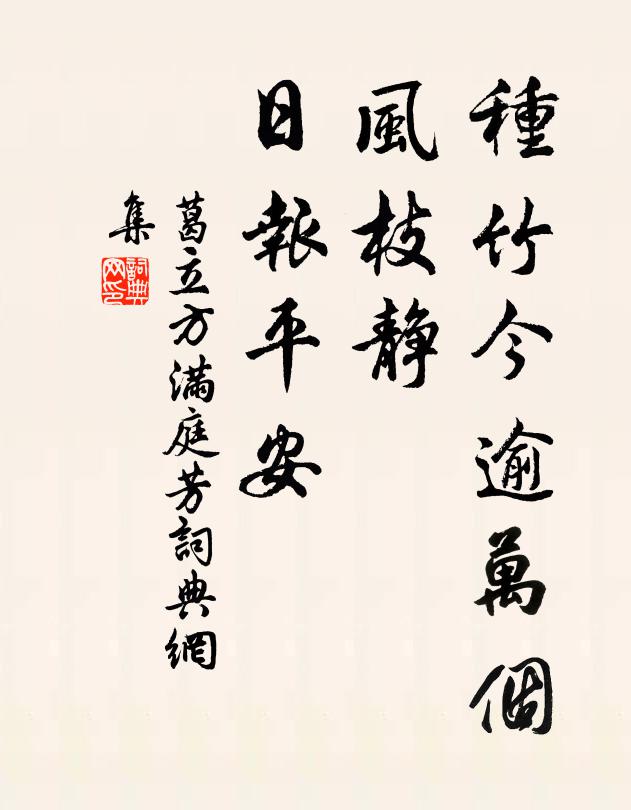 種竹今逾萬個
風枝靜
日報平安
葛立方滿庭芳詞典網
集
詞典网印